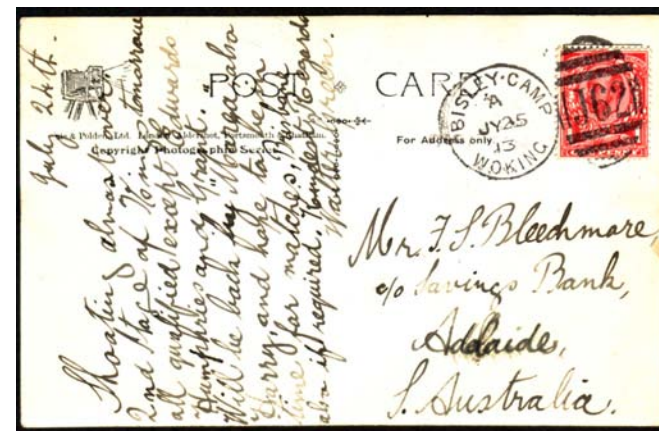 July 24th.
Shooting almost over.
2nd Stage of King's tomorrow
all qualified except Edwards
Humphries and Grant.
Will be back by "Morea" also
"Harry," and hope to be in
time for matches,
also if required. Kindest Regards
POST CARD
& Polden, Ltd. London, Aldershot, Portsmouth & Chatham.
Copyright Photographic Series
For Address only
BISLEY·CAMP
A
JY 25
13
WOKING
J62
Mr. F. S. Bleechmore,
c/o Savings Bank,
Adelaide,
S. Australia.